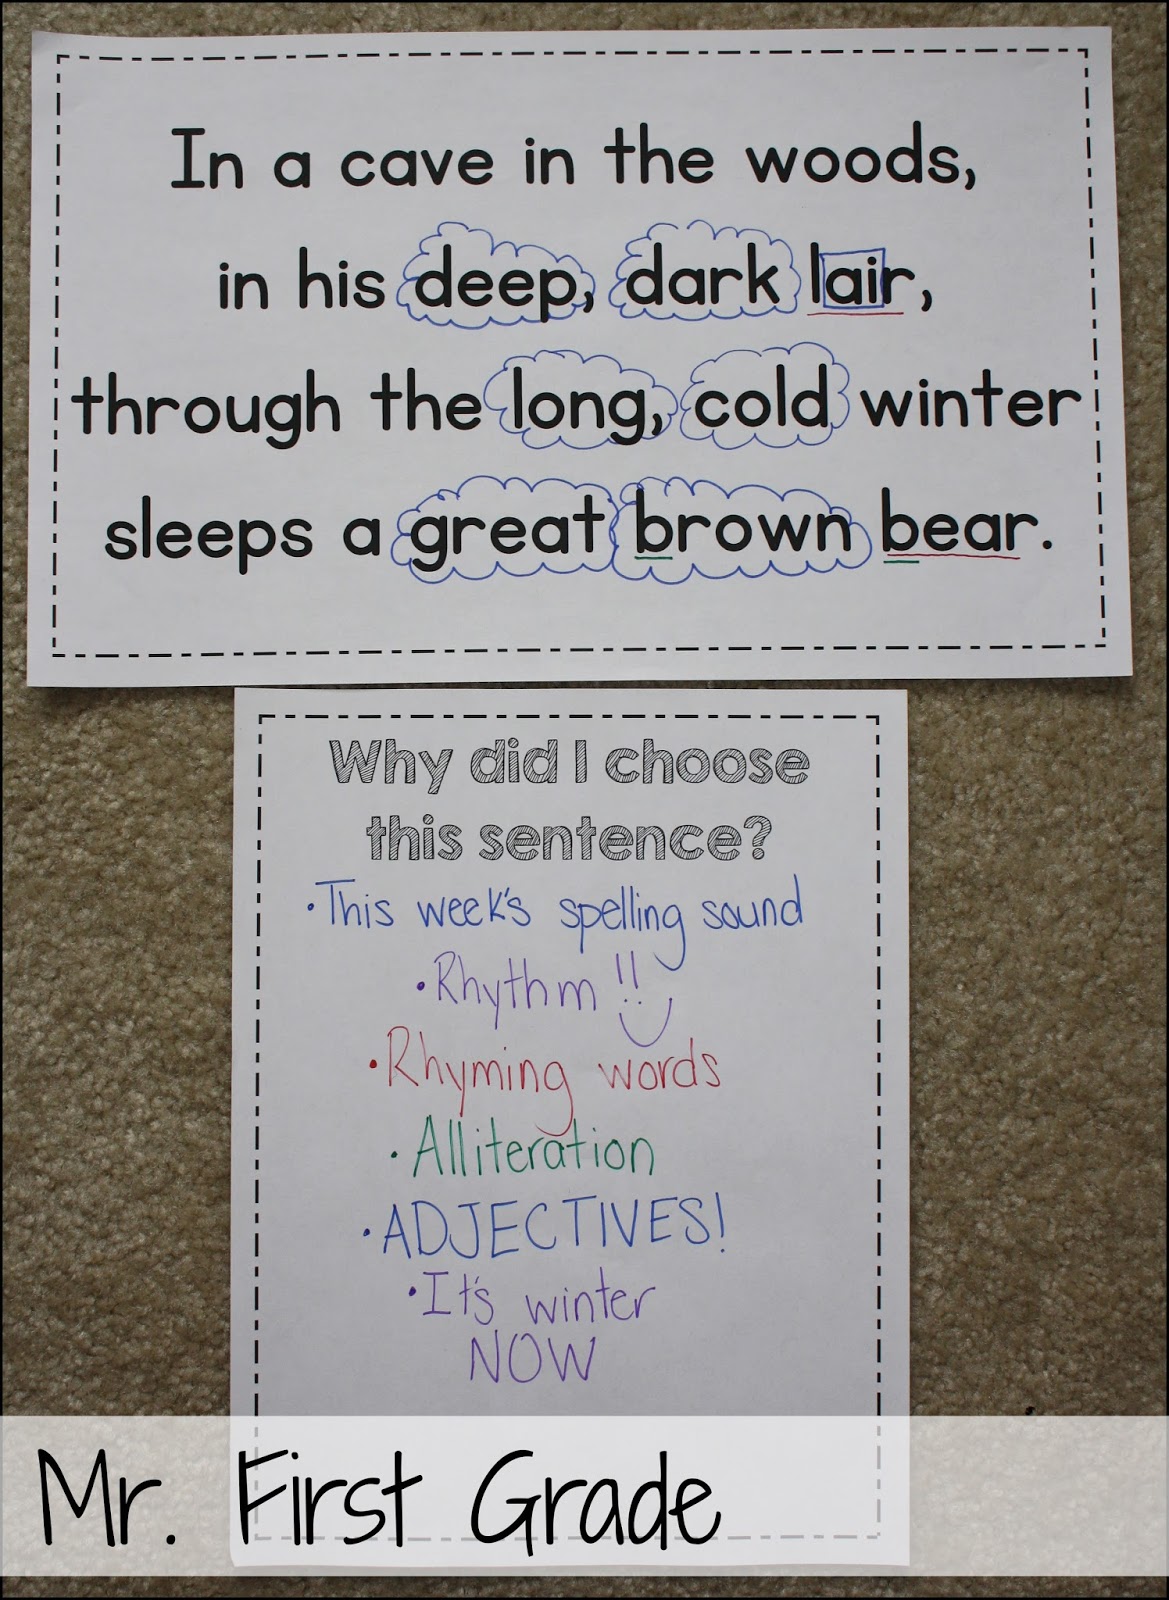 In a cave in the woods,
in his deep, dark lair,
through the long, cold winter
sleeps a great brown bear.
Why did I choose
this sentence?
• This week's spelling sound
• Rhythm !!
• Rhyming words
• Alliteration
• ADJECTIVES!
• It's winter
NOW
Mr. First Grade